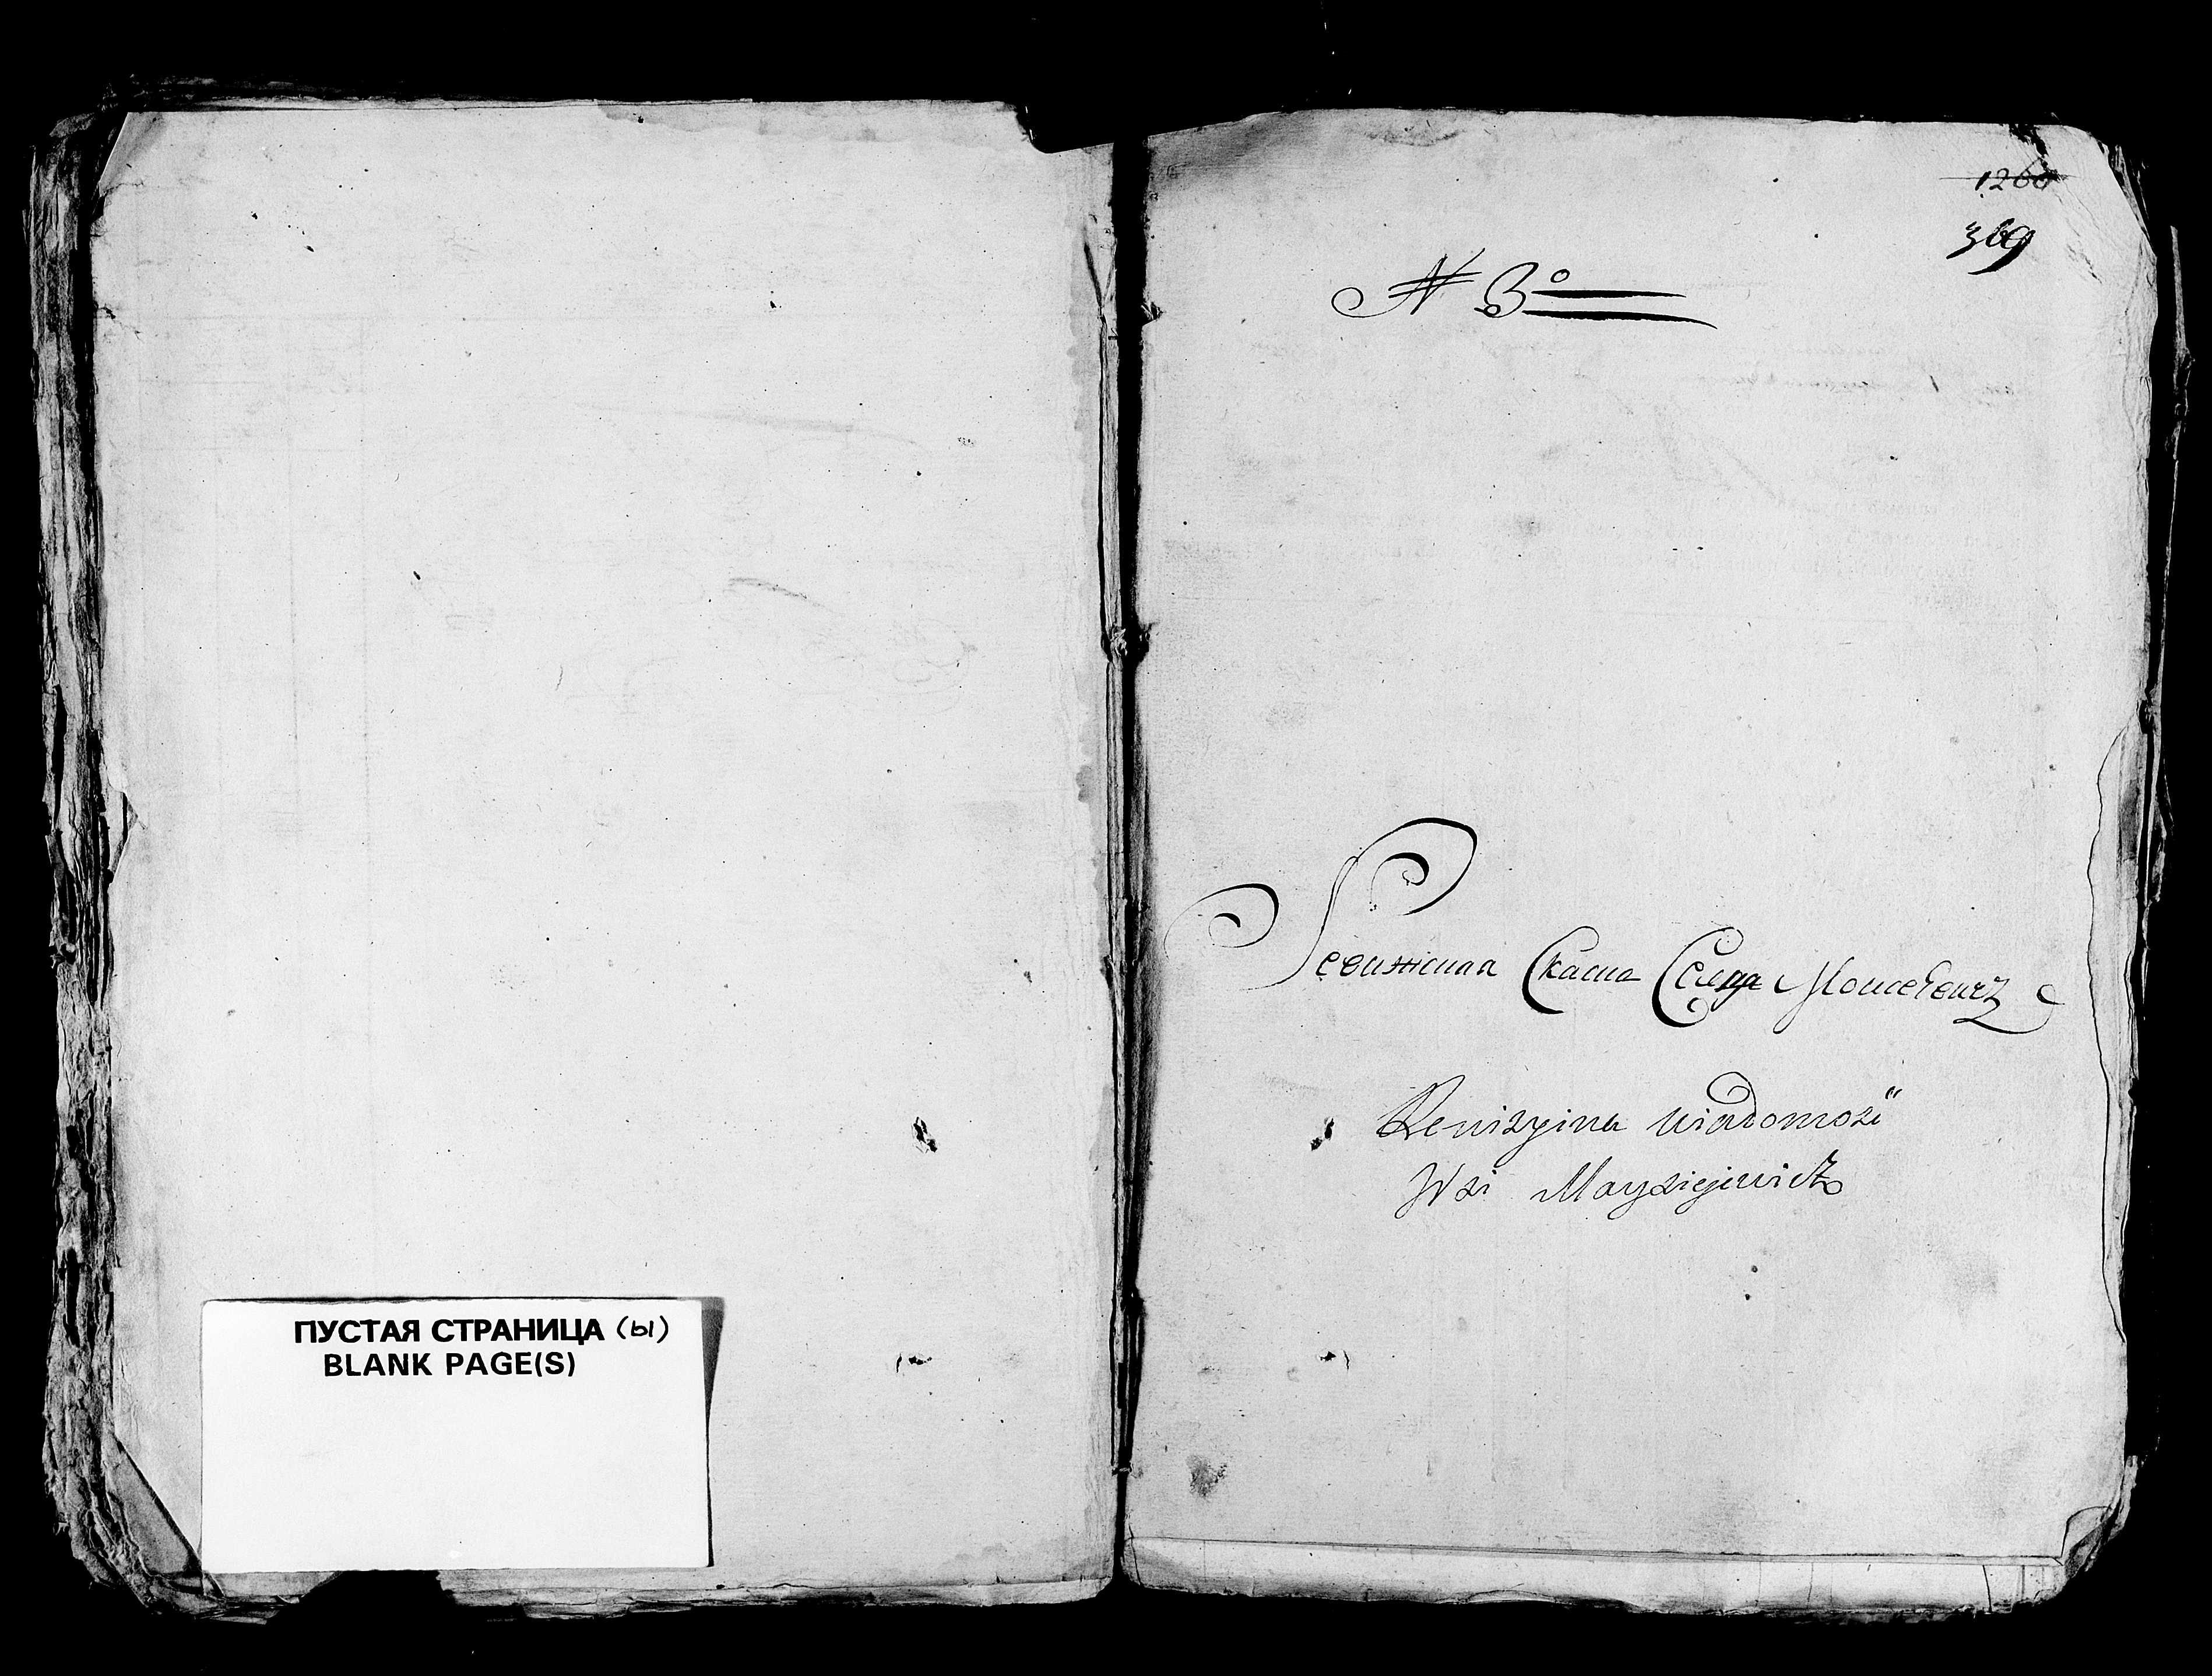 ПУСТАЯ СТРАНИЦА (ы)
BLANK PAGE(S)
1260
369
N 3º
Ревижская Скаска Села
Rewizyina wiadomość
Wsi Mayziejewicz